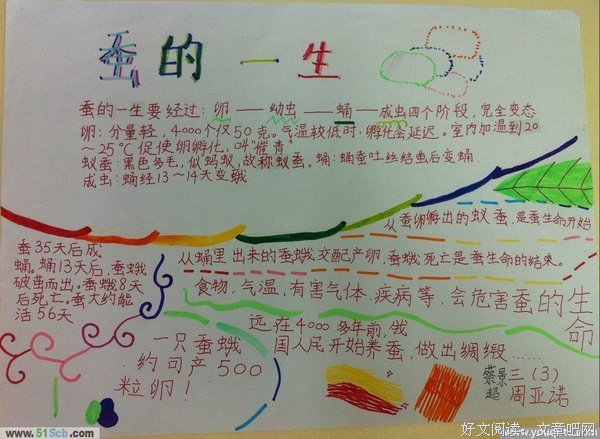 蚕的一生
蚕的一生要经过：卵——幼虫——蛹——成虫四个阶段，完全变态
卵：分量轻，4000个仅50克。气温较低时，孵化会延迟。室内加温到20
～25℃促使卵孵化，叫"催青"
蚁蚕：黑色多毛，似蚂蚁，故称蚁蚕。蛹：蛹蚕吐丝结茧后变蛹
成虫：蛹经13～14天变蛾
从蚕卵孵出的蚁蚕，是蚕生命开始
从蛹里出来的蚕蛾交配产卵，蚕蛾死亡是蚕生命的结束。
蚕35天后成
蛹。蛹13天后，蚕蛾
破茧而出。蚕蛾8天
后死亡。蚕大约能
活56天
食物、气温、有害气体、疾病等，会危害蚕的生
命
远在4000多年前，我
国人民开始养蚕，做出绸缎……
一只蚕蛾
约可产500
粒卵！
蔡景超
三（3）
周亚诺
www.51Scb.com
好文阅读－文章吧网